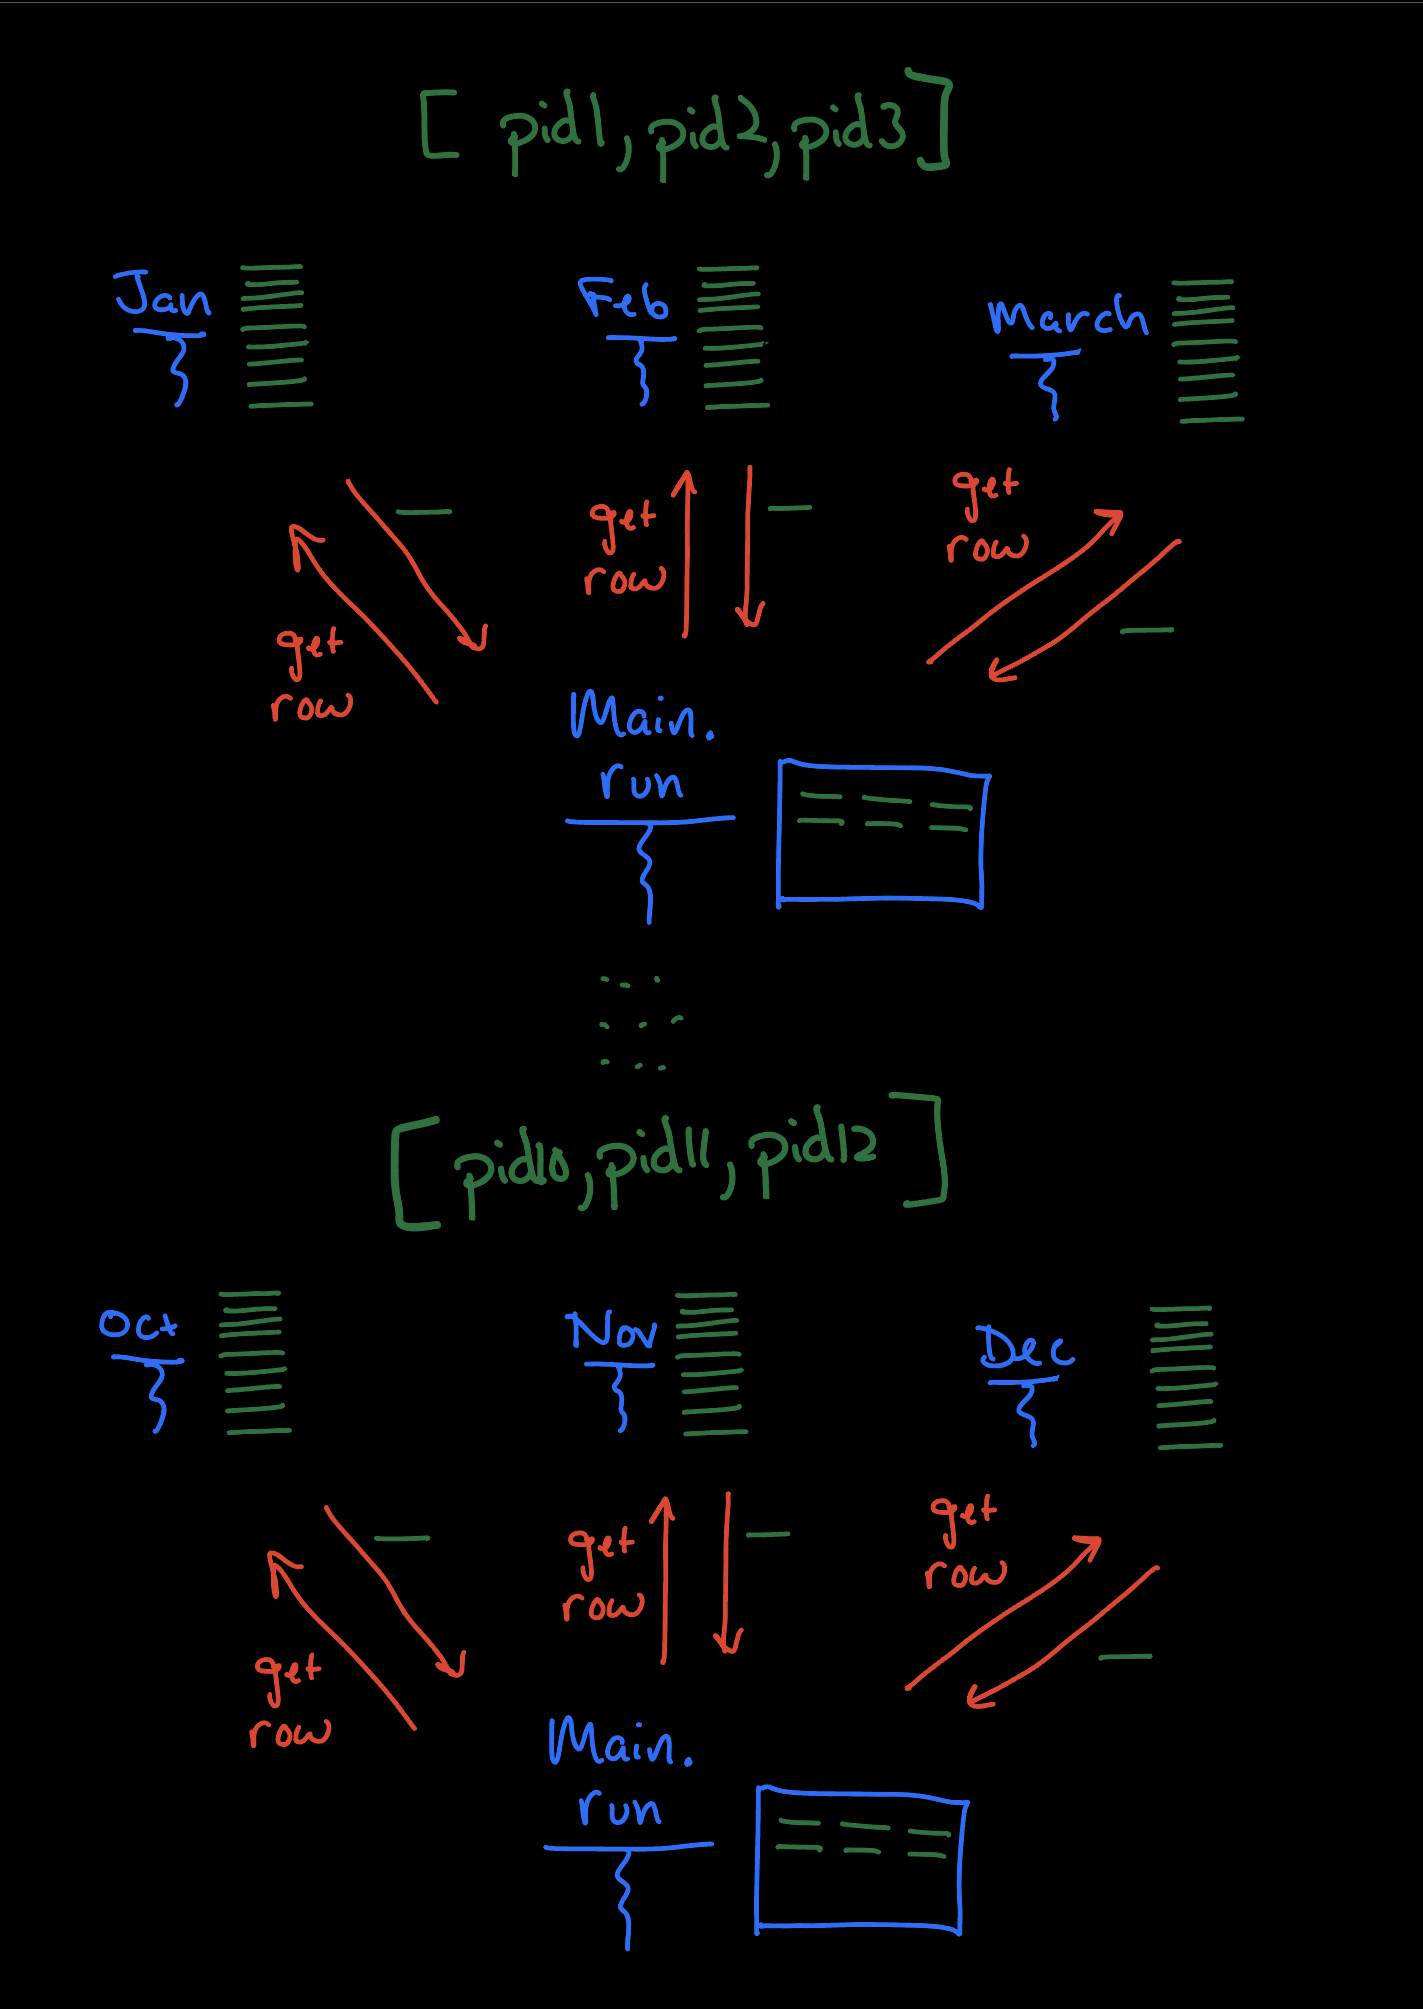 [ pid1, pid2, pid3 ]
Jan
Feb
March
get
row
get
row
get
row
Main.
run
[ pid10, pid11, pid12 ]
Oct
Nov
Dec
get
row
get
row
get
row
Main.
run